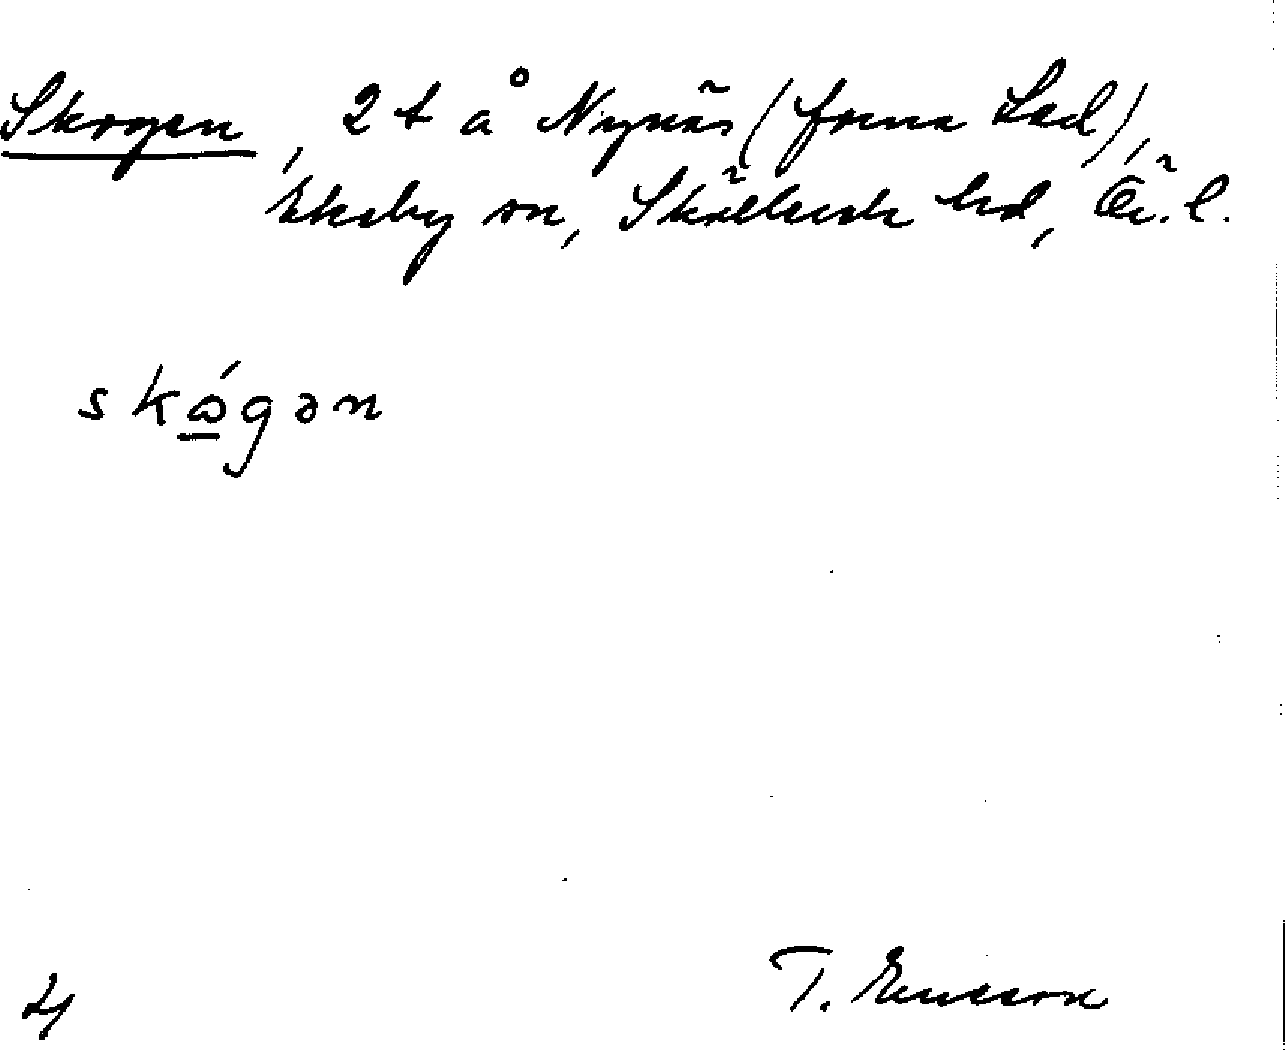 Skogen, 2 t å Nynäs (forna Led),
Ekeby sn, Skällerak hd, Ör. l.
skógən
T. Ericsson
4